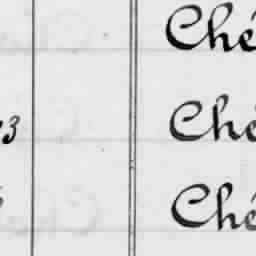 Ché
3 Ché
Ché